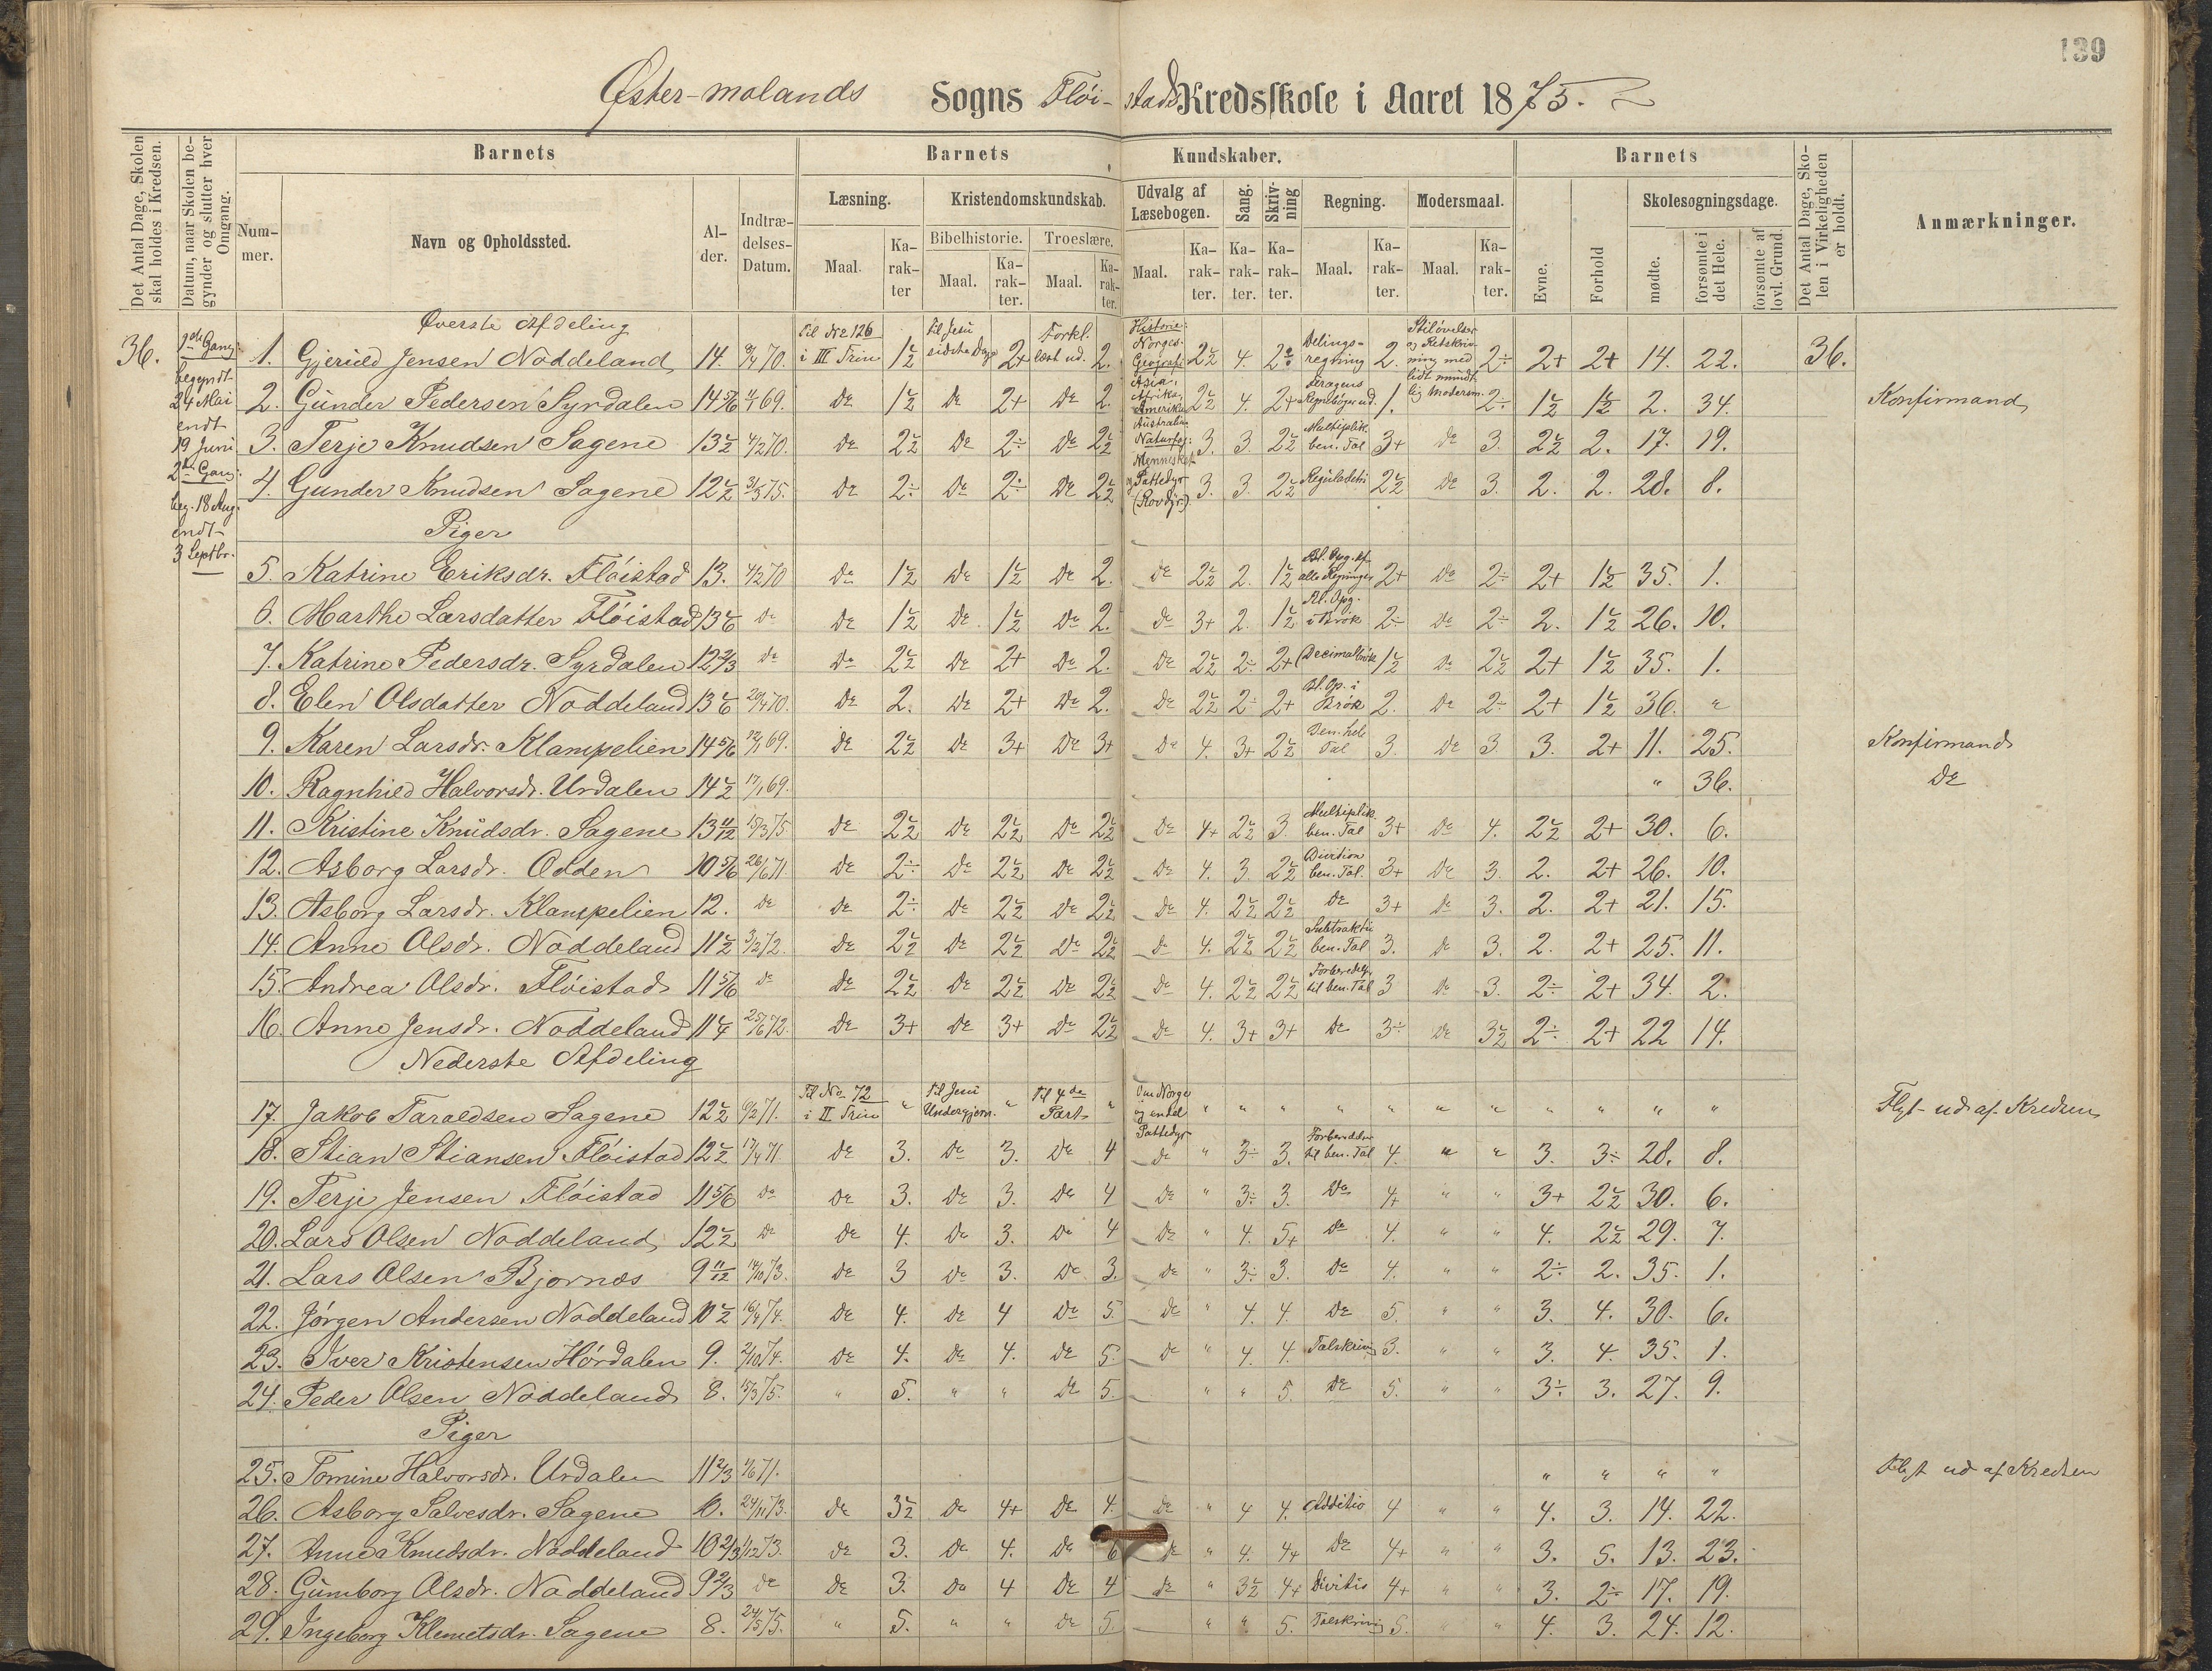 139
Øster-molands Sogns Flöi-stads Kredsskole i Aaret 1875.
Det Antal Dage, Skolen skal holdes i Kredsen.
Datum, naar Skolen begynder og slutter hver Omgang.
Barnets
Barnets Kundskaber.
Barnets
Det Antal Dage, Skolen i Virkeligheden er holdt.
Anmærkninger.
Nummer.
Navn og Opholdssted.
Alder.
Indtrædelses-Datum.
Læsning.
Kristendomskundskab.
Udvalg af Læsebogen.
Sang.
Skrivning
Regning.
Modersmaal.
Evne.
Forhold
Skolesøgningsdage.
Bibelhistorie.
Troeslære.
Maal.
Karakter
Maal.
Karakter.
Maal.
Karakter.
Maal.
Karakter.
Karakter.
Karakter.
Maal.
Karakter.
Maal.
Karakter.
mødte.
forsømte i det Hele.
forsømte af lovl. Grund.
36.
1ste Gang:
begyndt
24 Mai
endt
19 Juni
2den Gang:
beg. 18 Aug.
endt
3 Septbr.
Øverste Afdeling
Til No 126 i III Trin
til Jesu sidste Dage
Forkl. læst ud.
Historie:
Norges
Geografi
Asia,
Afrika,
Amerika
Australia
Naturhf:
Mennesket
og Pattedyr
(Rovdyr).
Stiløvelser og Retskrivning med lidt mundtlig Modersm.
1. Gjeruld Jensen Noddeland 14. 70. 1½ 2+ 2. 2½ 4. 2÷ Delingsregning 2. 2÷ 2+ 2+ 14. 22. 36.
2. Gunder Pedersen Syrdalen 14 5/6 69. do 1½ do 2+ do 2. 2½ 4. 2+ Regnebogen ud. 1. 2÷ 1½ 1½ 2. 34. Konfirmand
3. Terje Knudsen Sagene 13½ 4/2 70. do 2½ do 2÷ do 2½ 3. 3. 2½ Multiplik. ben. Tal 3+ do 3. 2½ 2. 17. 19.
4. Gunder Knudsen Sagene 12½ 31/3 75. do 2÷ do 2÷ do 2½ 3. 3. 2½ Reguladetri 2½ do 3. 2. 2. 28. 8.
Piger
5. Katrine Eriksdr. Flöistad 13. 4/2 70 do 1½ do 1½ do 2. do 2½ 2. 1½ Bl. Opg. af alle Regninger 2+ do 2÷ 2+ 1½ 35. 1.
6. Marthe Larsdatter Flöistad 13 1/6 do do 1½ do 1½ do 2. do 3+ 2. 1½ Bl. Opg. i Brök 2÷ do 2÷ 2. 1½ 26. 10.
7. Katrine Pedersdr. Syrdalen 12 2/3 do do 2½ do 2+ do 2. do 2½ 2÷ 2+ Decimalbrök 1½ do 2½ 2+ 1½ 35. 1.
8. Elen Olsdatter Noddeland 13 1/6 20/4 70. do 2. do 2+ do 2. do 2½ 2÷ 2+ Bl. Op. i Brök 2. do 2÷ 2+ 1½ 36. "
9. Karen Larsdr. Klampelien 14 5/6 69. do 2½ do 3+ do 3+ do 4. 3+ 2½ Ben. hele Tal 3. do 3 3. 2+ 11. 25. Konfirmand
10. Ragnhild Halvorsdr. Urdalen 14½ 17/1 69. " 36. do
11. Kristine Knudsdr. Sagene 13 11/12 15/3 75 do 2½ do 2½ do 2½ do 4+ 2½ 3. Multiplik. ben. Tal 3+ do 4. 2½ 2+ 30. 6.
12. Asborg Larsdr. Odden 10 5/6 26/6 71. do 2÷ do 2½ do 2½ do 4. 3. 2½ Division ben. Tal. 3+ do 3. 2. 2+ 26. 10.
13. Asborg Larsdr. Klampelien 12. do do 2÷ do 2½ do 2½ do 4. 2½ 2½ do 3+ do 3. 2. 2+ 21. 15.
14. Anne Olsdr. Noddeland 11½ 3/2 72. do 2½ do 2½ do 2½ do 4. 2½ 2½ Subtraktion ben. Tal 3. do 3. 2. 2+ 25. 11.
15. Andrea Olsdr. Flöistad 11 5/6 do do 2½ do 2½ do 2½ do 4. 2½ 2½ Forberedelse til ben. Tal 3 do 3. 2÷ 2+ 34. 2.
16. Anne Jensdr. Noddeland 11¼ 25/6 72. do 3+ do 3+ do 2½ do 4. 3+ 3+ do 3÷ do 3½ 2÷ 2+ 22 14.
Nederste Afdeling
17. Jakob Taraldsen Sagene 12½ 71. Til No 72 i II Trin " til Jesu Undergjern. " til 4de Part " Om Norge og endel Pattedyr " " " " " " " " " " " Flyt ud af Kredsen
18. Stian Stiansen Flöistad 12½ 17/4 71 do 3. do 3. do 4 do " 3÷ 3. Forberedelse til ben. Tal 4. " " 3. 3÷ 28. 8.
19. Terje Jensen Flöistad 11 5/6 do do 3. do 3. do 4 do " 3÷ 3. do 4+ " " 3+ 2½ 30. 6.
20. Lars Olsen Noddeland 12½ do do 4. do 3. do 4 do " 4. 5+ do 4. " " 4. 2½ 29. 7.
21. Lars Olsen Bjornos 9 11/12 14/10 73. do 3 do 3. do 3. do " 3÷ 3. do 4. " " 2÷ 2. 35. 1.
22. Jörgen Andersen Noddeland 10½ 16/4 74. do 4. do 4 do 5. do " 4. 4. do 5. " " 3. 4. 30. 6.
23. Iver Kristensen Hördalen 9. 2/10 74. do 4. do 4. do 5. do " 4. 4. Talskrivning 3. " " 3. 4. 35. 1.
24. Peder Olsen Noddeland 8. 15/3 75. " 5. " " do 5. " " 5. do 5. " " 3÷ 3. 27. 9.
Piger
25. Tomine Halvorsdr. Urdalen 11 2/3 71. " " " " Flyt ud af Kredsen
26. Asborg Salvesdr. Sagene 24/11 73. do 3½ do 4+ do 4. do " 4 4. Additio 4 " " 4. 3. 14. 22.
27. Anne Knudsdr. Noddeland 10 2/3 1/12 73. do 3. do 4. do 6 do " 4. 4+ do 4+ " " 3. 5. 13. 23.
28. Gumborg Olsdr. Noddeland 9 2/3 do do 3. do 4 do 4 do " 3½ 4+ Divitio 4+ " " 3. 2÷ 17. 19.
29. Ingeborg Klemetsdr. Sagene 8. 24/5 75. " 5. " " do 5. " " 5. Talskrivning 5. " " 4. 3. 24. 12.